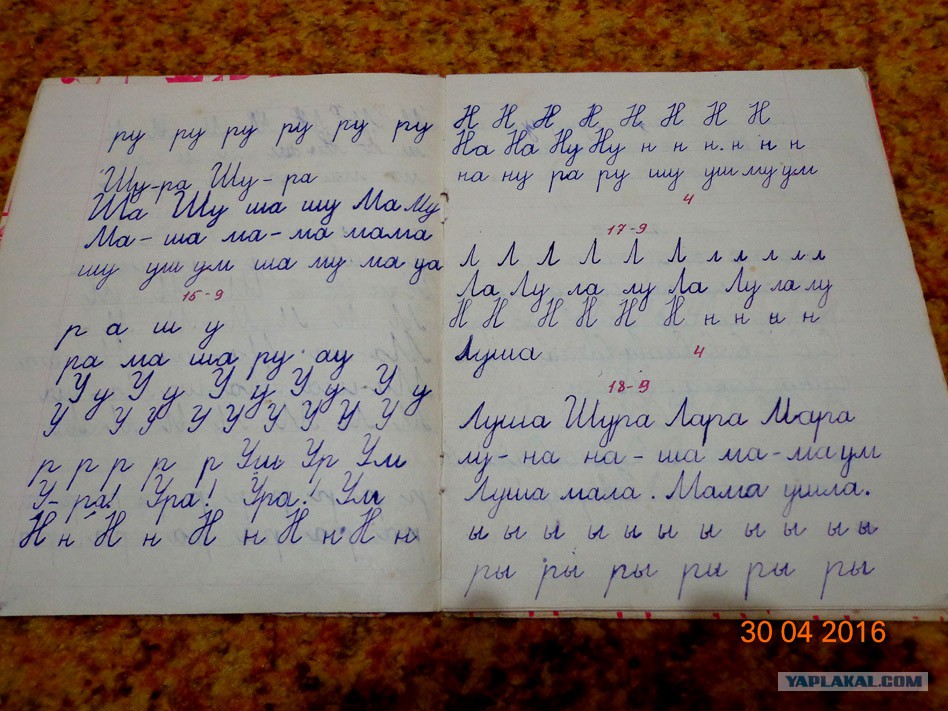 ру ру ру ру ру ру
Шу-ра Шу-ра
Ша Шу ша шу Ма Му
Ма-ша ма-ма мама
шу уш ум ша му ма уа
15-9
р а ш у
ра ма ша ру ау
У у У у У у У у У у
У У У У У У У У У
р р р р р Уш Ур Ум
У-ра! Ура! Ура! Ум
Н н Н н Н н Н н Н н
Н Н Н Н Н Н Н Н
На На Ну Ну н н н. н н н
на ну ра ру шу уш му ум
4
17-9
Л Л Л Л Л Л л л л л л
Ла Лу ла лу Ла Лу ла лу
Н Н Н Н Н Н н н н н
Луша
4
18-9
Луша Шура Лара Мара
лу-на на-ша ма-ма ум
Луша мала. Мама ушла.
ы ы ы ы ы ы ы ы ы ы ы
ры ры ры ры ры ры
30 04 2016
YAPLAKAL.COM